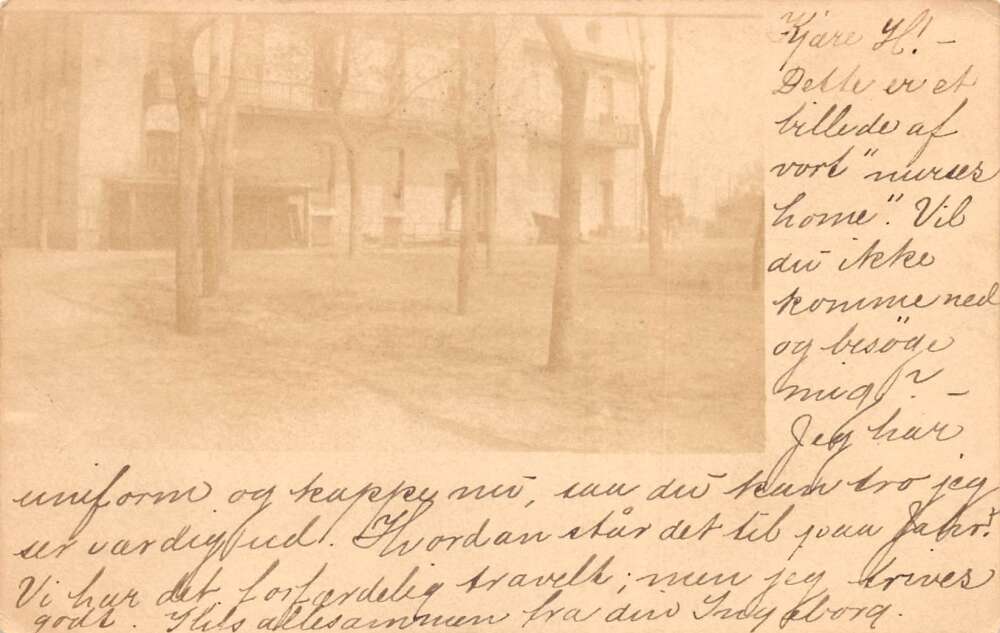 Kjære H! –
Dette er et
billede af
vort "nurses
home". Vil
du ikke
komme ned
og besöge
mig? –
Jeg har
uniform og kappe nu, saa du kan tro jeg
ser værdig ud. Hvordan står det til paa Jahr?
Vi har det forfærdelig travelt; men jeg trives
godt. Hils allesammen fra din Ingeborg.